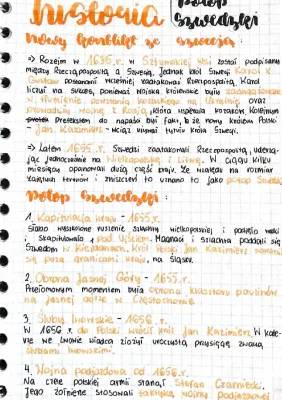 historia
Potop
Szwedzki
Nowy konflikt ze Szwecją
=> Rozejm w 1635r. w Sztumskiej Wsi został podpisany
między Rzeczpospolitą a Szwecją. Jednak król Szwecji Karol X
Gustaw postanowił wcześniej zaatakować Rzeczpospolitą. Karol
liczył na sukces, ponieważ wojska królewskie były zaangażowane
w tłumienie powstania kozackiego na Ukrainie oraz
prowadziły wojnę z Rosją, która wspierała kozaków. Kolejnym
Pretekstem do napaści był fakt, że nowy królem Polski
- Jan Kazimierz - wciąż używał tytułu króla Szwecji.
=> Latem 1655r. Szwedzi zaatakowali Rzeczpospolitą, uderza-
jąc jednocześnie na Wielkopolskę i Litwę. W ciągu kilku
miesięcy opanowali dużą część kraju. Ze względu na rozmiar
zajętych terenów i zniszczeń to uznano to jako potop Szwedzki
Potop szwedzki:
1. Kapitulacja kraju - 1655r.
Słabo wyszkolone ruszenie szlachty wielkopolskiej i piechoty
i skapitulowała pod Ujściem. Magnaci i szlachta poddali się
Szwedom w Kiejdanach. Król Polski Jan Kazimierz
się poza granicami kraju, na Śląsku.
2. Obrona Jasnej Góry - 1655r.
Przełomowym momentem była obrona klasztoru paulinów
na Jasnej Górze w Częstochowie.
3. Śluby lwowskie - 1656r.
W 1656r. do Polski wrócił król Jan Kazimierz. W kate-
drze we Lwowie władca złożył uroczystą przysięgę zwaną
ślubami lwowskimi.
4. Wojna podjazdowa od 1656r.
Na czele polskiej armii stanął Stefan Czarniecki.
Jego żołnierze stosowali taktykę wojny podjazdowej